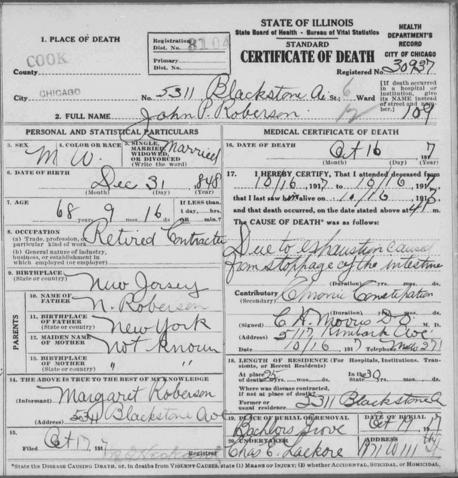 STATE OF ILLINOIS
State Board of Health - Bureau of Vital Statistics
STANDARD
CERTIFICATE OF DEATH
HEALTH
DEPARTMENT'S
RECORD
CITY OF CHICAGO
Registered No. 30937
1. PLACE OF DEATH
Registration
Dist. No. 8104
Primary
Dist. No.
COOK
County
CHICAGO
City
No. 5311 Blackstone Av St; 6 Ward
[If death occurred
in a hospital or
institution, give
its NAME instead
of street and number.]
2. FULL NAME John P. Roberson
109
PERSONAL AND STATISTICAL PARTICULARS
3. SEX M
4. COLOR OR RACE W.
5. SINGLE,
MARRIED,
WIDOWED,
OR DIVORCED
(Write the word)
Married
6. DATE OF BIRTH
Dec 31 1848
(Month) (Day) (Year)
7. AGE
68 yrs. 9 mos. 16 ds.
If LESS than
1 day, hrs.
or min.
8. OCCUPATION
(a) Trade, profession, or
particular kind of work
(b) General nature of industry,
business, or establishment in
which employed (or employer)
Retired Contractor
9. BIRTHPLACE
(State or country)
New Jersey
PARENTS
10. NAME OF
FATHER
N. Roberson
11. BIRTHPLACE
OF FATHER
(State or country)
New York
12. MAIDEN NAME
OF MOTHER
Not Known
13. BIRTHPLACE
OF MOTHER
(State or country)
" "
14. THE ABOVE IS TRUE TO THE BEST OF MY KNOWLEDGE
(Informant) Margaret Roberson
(Address) Blackstone Ave
15.
Filed Oct 17 1917
MEDICAL CERTIFICATE OF DEATH
16. DATE OF DEATH
Oct 16 1917
(Month) (Day) (Year)
17. I HEREBY CERTIFY, That I attended deceased from
10/16, 1917 to 10/16 1917
that I last saw him alive on 10/16 1917
and that death occurred, on the date stated above at
The CAUSE OF DEATH* was as follows:
Due to exhaustion caused
from stoppage of the intestine
(Duration) yrs. mos. ds.
Contributory
(Secondary)
Chronic Constipation
(Duration) yrs. mos. ds.
(Signed) C. H. Morris M. D.
Address Kimbark Ave
Date 10/16 1917 Telephone
18. LENGTH OF RESIDENCE (For Hospitals, Institutions, Transients, or Recent Residents)
At place of death 25 yrs. mos. ds. In the State 30 yrs. mos. ds.
Where was disease contracted,
if not at place of death?
Former or
usual residence Blackstone
19. PLACE OF BURIAL OR REMOVAL
Bachlors Grove
DATE OF BURIAL
Oct 1917
20. UNDERTAKER
Chas E. Lackore
ADDRESS
*State the DISEASE CAUSING DEATH, or, in deaths from VIOLENT CAUSES, state (1) MEANS OF INJURY; (2) whether ACCIDENTAL, SUICIDAL, or HOMICIDAL.